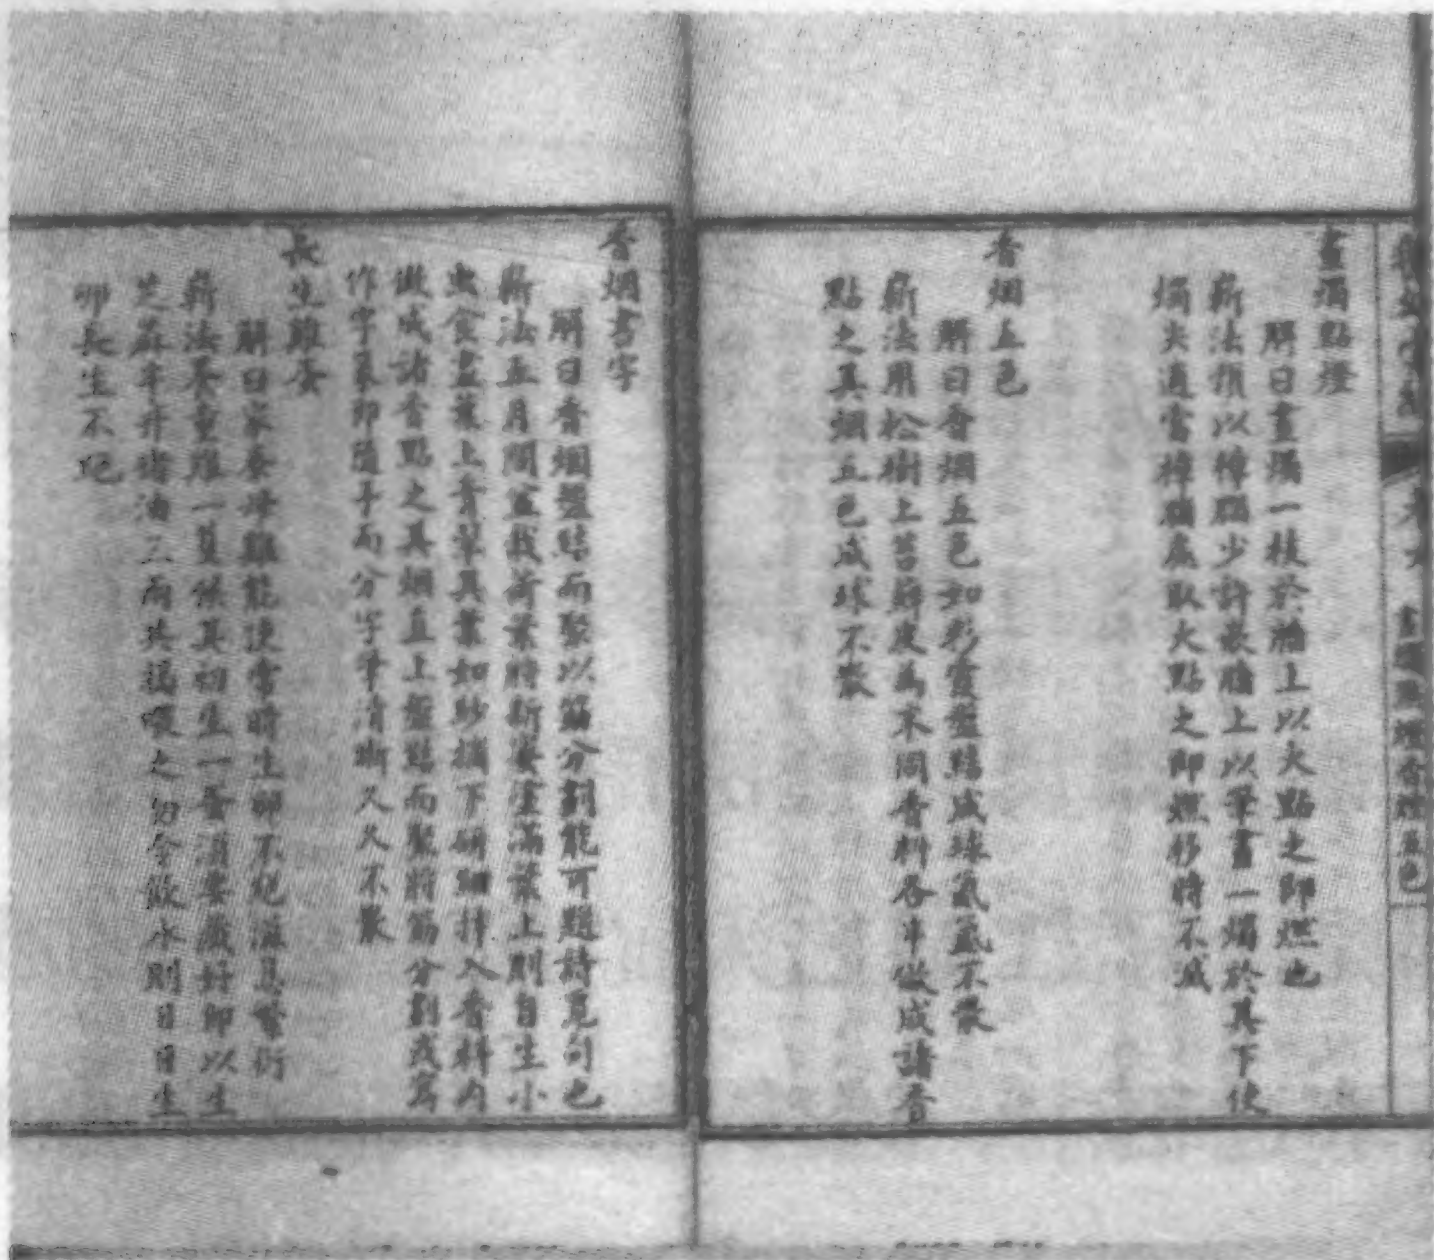 畫燭點燈
解曰畫燭一枝於牆上以火點之即燃也
新法預以樟腦少許裝牆上以筆畫一燭於其下使
燭尖適當樟腦處取火點之即燃移時不滅
香烟五色
解曰香烟五色如彩霞盤結成球氤氳不散
新法用松樹上苔蘚及為末同香料各半做成諸香
點之其烟五色成球不散
香烟書字
解曰香烟盤結而聚以筯分劃能可題詩覓句也
新法五月間盆栽荷葉將新塗滿葉上則自生小
虫食盡葉上青翠其葉如紗摘下研細拌入香料內
做成諸香點之其烟直上盤結而聚將筯分劃或寫
作字象即隨手而分字筆清晰久久不散
長生雞蛋
解曰家養母雞能使常時生卵不絕滋息繁衍
新法養童雞一隻俟其初生一蛋須要藏好即以生
芝麻半升猪油二兩共搗喂之勿令飲水則日日生
卵長生不絕